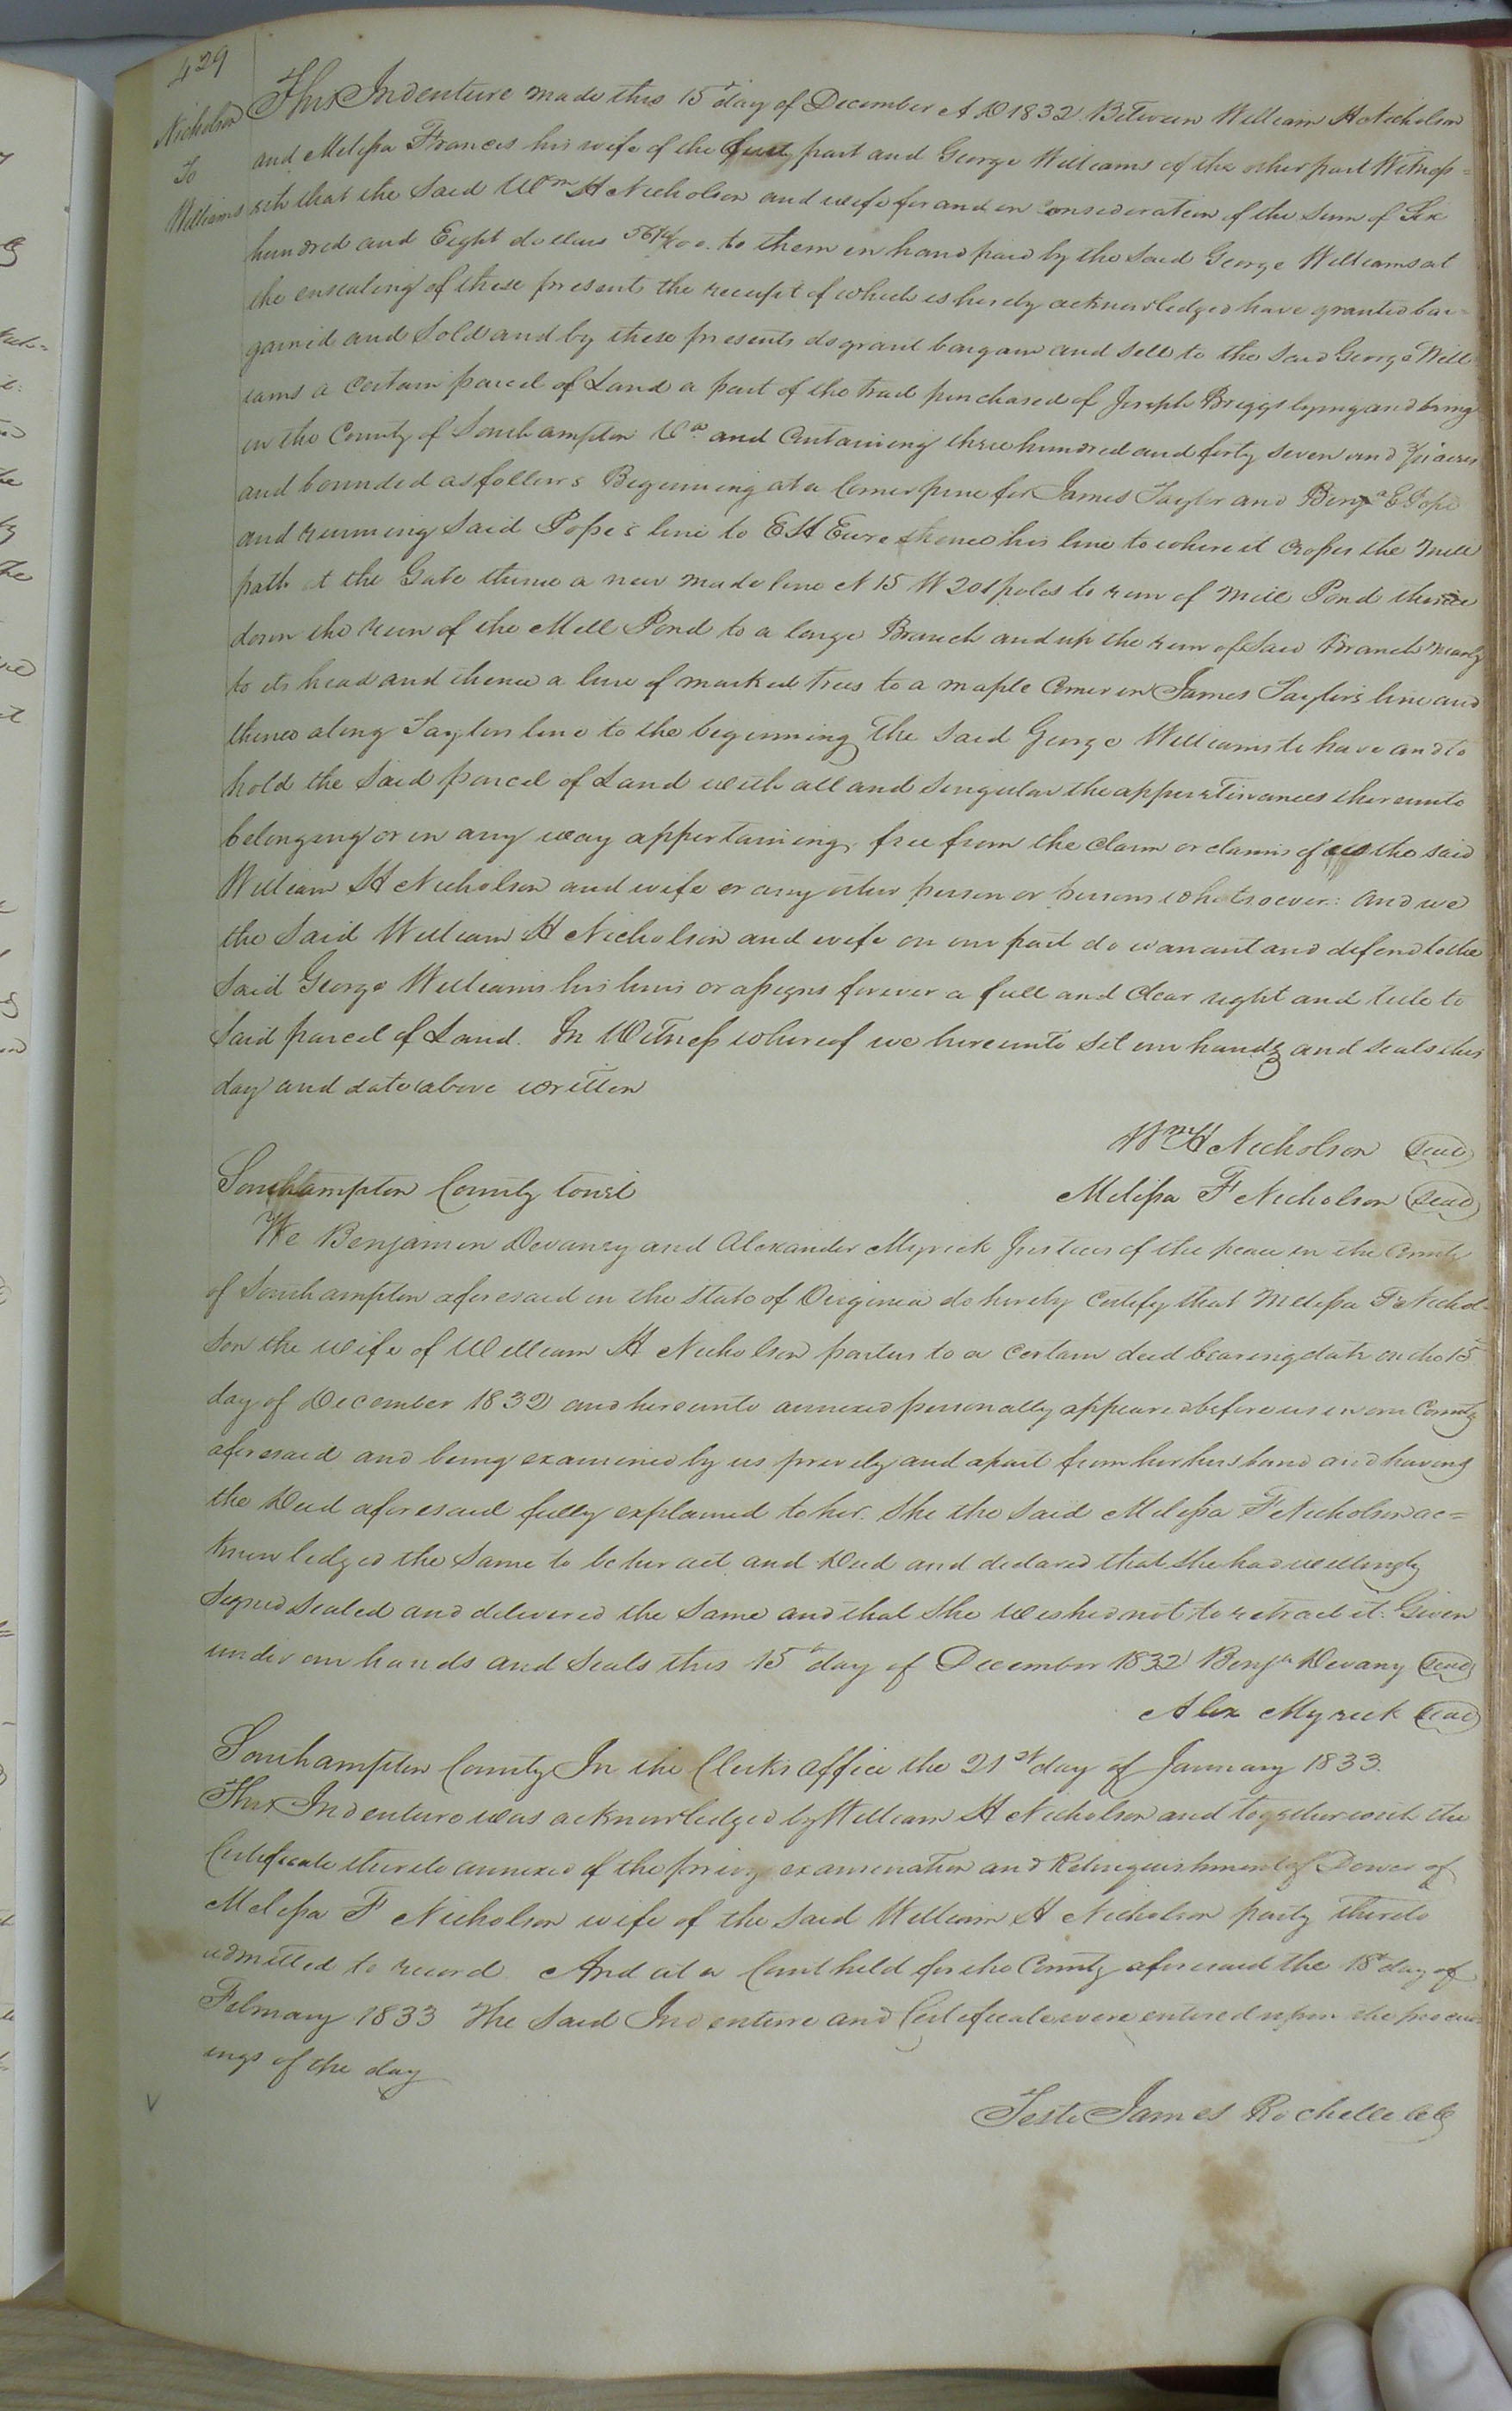 429
Nicholson
To
Williams
This Indenture made this 15th day of December A D 1832 Between William H Nicholson
and Melissa Frances his wife of the first part and George Williams of the other part Witness=
eth that the Said Wm H Nicholson and wife for and in Consideration of the Sum of Six
hundred and Eight dollars to them in hand paid by the Said George Williams at
the ensealing of these presents the receipt of which is hereby acknowledged have granted bar=
gained and Sold and by these presents do grant bargain and sell to the Said George Will
iams a Certain parcel of Land a part of the tract purchased of Joseph Briggs lying and being
in the County of Southampton Va and Containing three hundred and forty seven and acres
and bounded as follows Beginning at a Corner pine for James Taylor and Benja E Pope
and running Said Pope's line to E H Eure thence his line to where it crosses the Mill
path at the Gate thence a new made line N 15 W 201 poles to run of Mill Pond thence
down the run of the Mill Pond to a large Branch and up the run of Said Branch nearly
to its head and thence a line of marked trees to a maple Corner in James Taylor's line and
thence along Taylors line to the beginning The Said George Williams to have and to
hold the Said parcel of Land with all and Singular the appurtinances thereunto
belonging or in any way appertaining, free from the Claim or claims of us the said
William H Nicholson and wife or any other person or persons whatsoever: and we
the Said William H Nicholson and wife on our part do warrant and defend to the
Said George Williams his heirs or assigns forever a full and Clear right and title to
Said parcel of Land. In Witness whereof we hereunto Set our hands and seals this
day and date above written
Wm H Nicholson Seal
Southampton County towit
Melissa F Nicholson Seal
We Benjamin Devaney and Alexander Myrick Justices of the peace in the County
of Southampton aforesaid in the State of Virginia do hereby Certify that Melissa F Nichol=
son the wife of William H Nicholson parties to a Certain deed bearing date on the 15th
day of December 1832 and hereunto annexed personally appeared before us in our County
aforesaid and being examined by us privily and apart from her husband and having
the Deed aforesaid fully explained to her. She the Said Melissa F Nicholson ac=
knowledged the Same to be her act and Deed and declared that She had willingly
Signed Sealed and delivered the Same and that She wished not to retract it. Given
under our hands and Seals this 15th day of December 1832 Benjn Devany Seal
Alex Myrick Seal
Southampton County In the Clerks Office the 21st day of January 1833.
This Indenture was acknowledged by William H Nicholson and together with the
Certificate thereto annexed of the privy examination and Relinquishment of Dower of
Melissa F Nicholson wife of the Said William H Nicholson party thereto
admitted to record. And at a Court held for the County aforesaid the 18th day of
February 1833 The Said Indenture and Certificate were entered upon the proceed
ings of the day
Teste James Rochelle